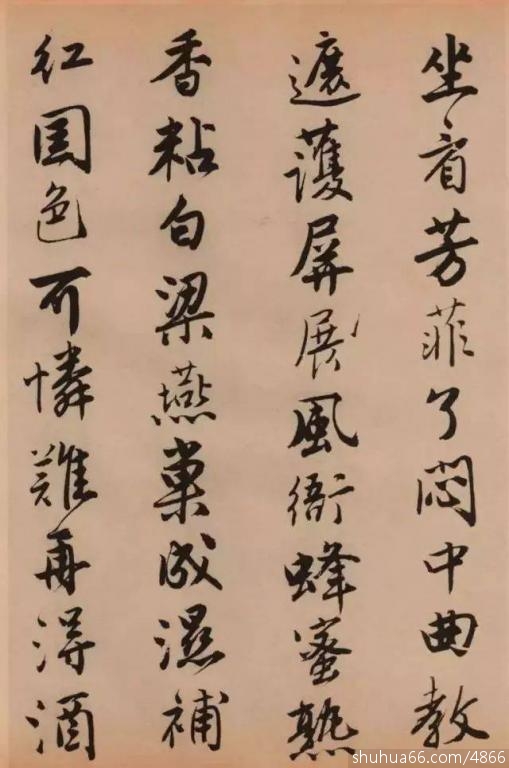 坐看芳菲了悶中曲教
遮護屏展風衙蜂蜜熟
香粘白梁燕巢成濕補
红国色可憐難再得酒
shuhua66.com/4866